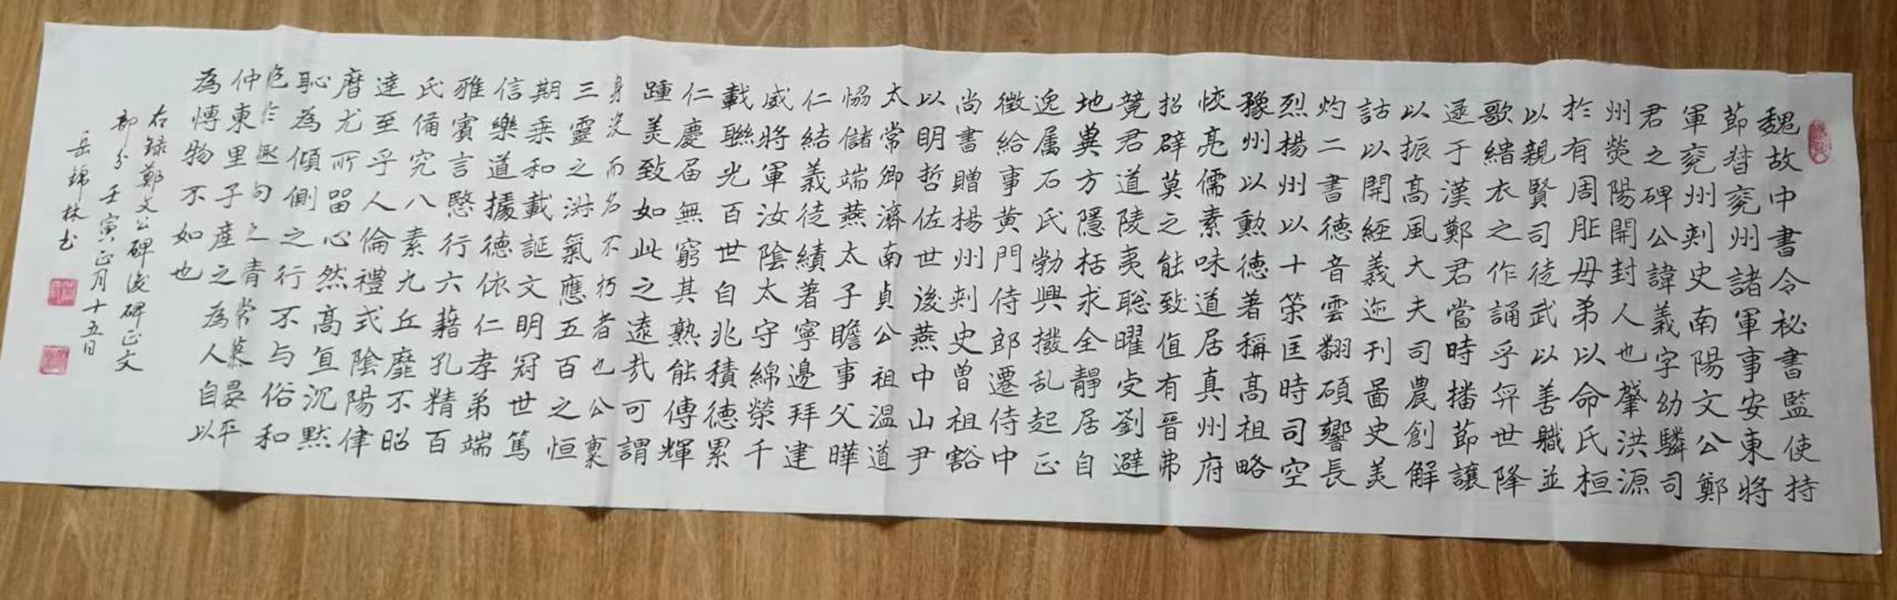 魏故中書令秘書監使持
節督兗州諸軍事安東將
軍兗州刺史南陽文公鄭
君之碑公諱羲字幼驎司
州熒陽開封人也肇洪源
於有周胙母弟以命氏桓
以親賢司徒武以善職並
歌緇衣之作誦乎羿世降
逐于漢鄭君當時播節讓
以振高風大夫司農創解
詁以開經義迹刊圖史美
灼二書德音雲翻碩響長
烈楊州以十策匡時司空
豫州以勳德著稱高祖略
恢亮儒素味道居真州府
招辟莫之能致值有晉弗
競君道陵夷聡曜受劉避
地兾方隱栝求全靜居自
逸属石氏勃興撥乱起正
徵給事黃門侍郎遷侍中
尚書贈楊州刺史曾祖豁
以明哲佐世後燕中山尹
太常卿濟南貞公祖溫道
恊儲端燕太子瞻事父曄
仁結義徒績著寧邊拜建
威將軍汝陰太守綿榮千
載聯光百世自兆積德累
仁慶屆無窮其熟能傳輝
踵美致如此之遠㢤可謂
身没而名不朽者也公稟
三靈之淋氣應五百之恒
期乗和載誕文明冠世篤
信樂道據德依仁孝弟端
雅賓言慜行六藉孔精百
氏備究八素九丘靡不昭
達至乎人倫禮式陰陽律
曆尤所留心然高直沉黙
恥為傾側之行不与俗和
仲東里子產之為人自以
為博物不如也
右錄鄭文公碑後碑正文
部分壬寅正月十五日
岳錦林书